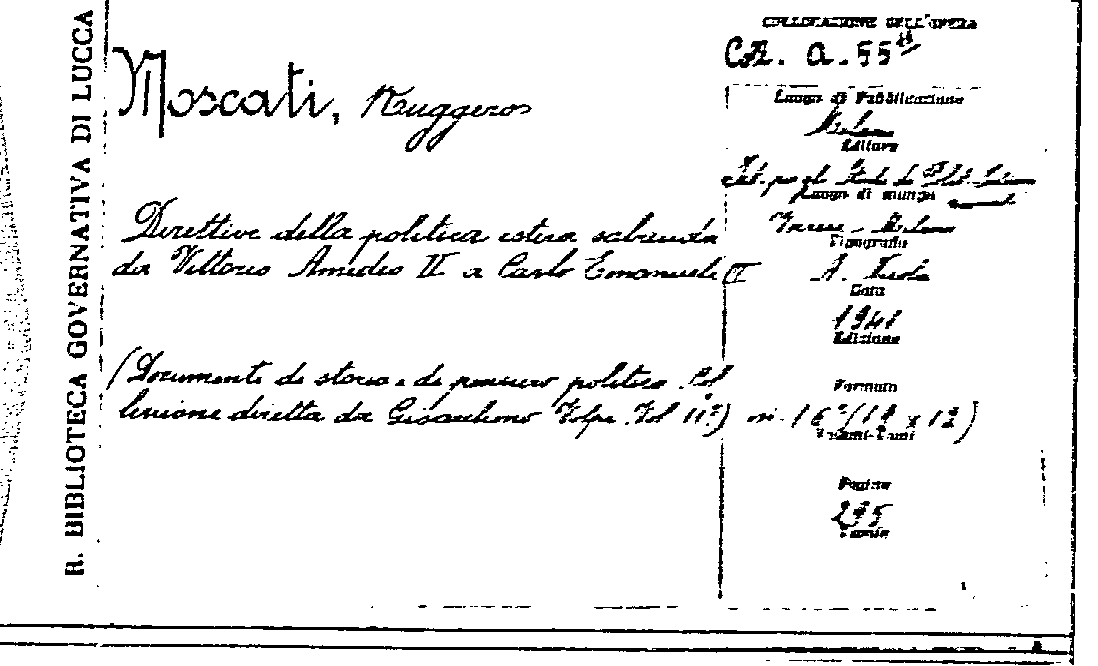 R. BIBLIOTECA GOVERNATIVA DI LUCCA
Moscati, Ruggero
Direttive della politica estera sabauda
da Vittorio Amedeo II a Carlo Emanuele II
(Documenti di storia e di pensiero politico. Col
lezione diretta da Gioacchino Volpe. Vol 11º)
COLLOCAZIONE DELL'OPERA
CA. a. 55
Luogo di Pubblicazione
Milano
Editore
Ist. per gli Studi di Polit.
Luogo di stampa
Varese - Milano
Tipografia
A. Nicola
Data
1941
Edizione
Formato
in-16º (19 x 12)
Volumi-Tomi
Pagine
295
Tavole